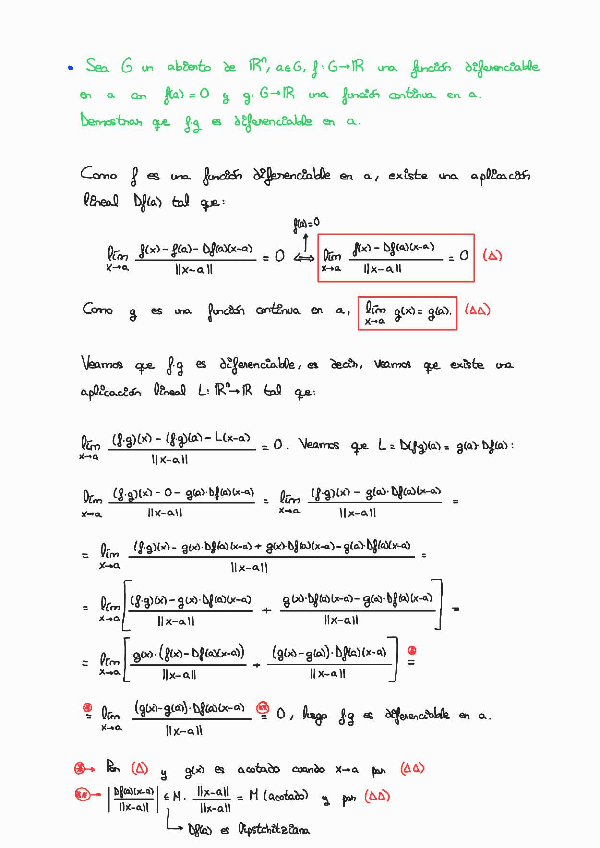 • Sea G un abierto de ℝⁿ, a∈G, f: G→ℝ una función diferenciable
en a con f(a)=0 y g: G→ℝ una función continua en a.
Demostrar que f·g es diferenciable en a.
Como f es una función diferenciable en a, existe una aplicación
lineal Df(a) tal que:
f(a)=0
lím_{x→a} (f(x)-f(a)-Df(a)(x-a))/||x-a|| = 0 ⟺ lím_{x→a} (f(x)-Df(a)(x-a))/||x-a|| = 0 (Δ)
Como g es una función continua en a, lím_{x→a} g(x)=g(a). (ΔΔ)
Veamos que f·g es diferenciable, es decir, veamos que existe una
aplicación lineal L: ℝⁿ→ℝ tal que:
lím_{x→a} ((f·g)(x)-(f·g)(a)-L(x-a))/||x-a|| = 0. Veamos que L = D(f·g)(a) = g(a)·Df(a):
lím_{x→a} ((f·g)(x)-0-g(a)·Df(a)(x-a))/||x-a|| = lím_{x→a} ((f·g)(x)-g(a)·Df(a)(x-a))/||x-a|| =
= lím_{x→a} ((f·g)(x)-g(x)·Df(a)(x-a)+g(x)·Df(a)(x-a)-g(a)·Df(a)(x-a))/||x-a|| =
= lím_{x→a} [((f·g)(x)-g(x)·Df(a)(x-a))/||x-a|| + (g(x)·Df(a)(x-a)-g(a)·Df(a)(x-a))/||x-a||] =
= lím_{x→a} [(g(x)·(f(x)-Df(a)(x-a)))/||x-a|| + ((g(x)-g(a))·Df(a)(x-a))/||x-a||] (*) =
(*) = lím_{x→a} ((g(x)-g(a))·Df(a)(x-a))/||x-a|| (**) = 0, luego f·g es diferenciable en a.
(*) → Por (Δ) y g(x) es acotado cuando x→a por (ΔΔ)
(**) → |Df(a)(x-a)/||x-a||| ≤ M · ||x-a||/||x-a|| = M (acotado) y por (ΔΔ)
↳ Df(a) es Lipstchitziana